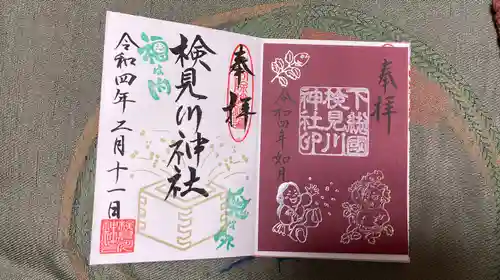 奉拝
検見川神社
福は内
鬼は外
令和四年二月十一日
奉拝
下総國
検見川
神社印
令和四年如月